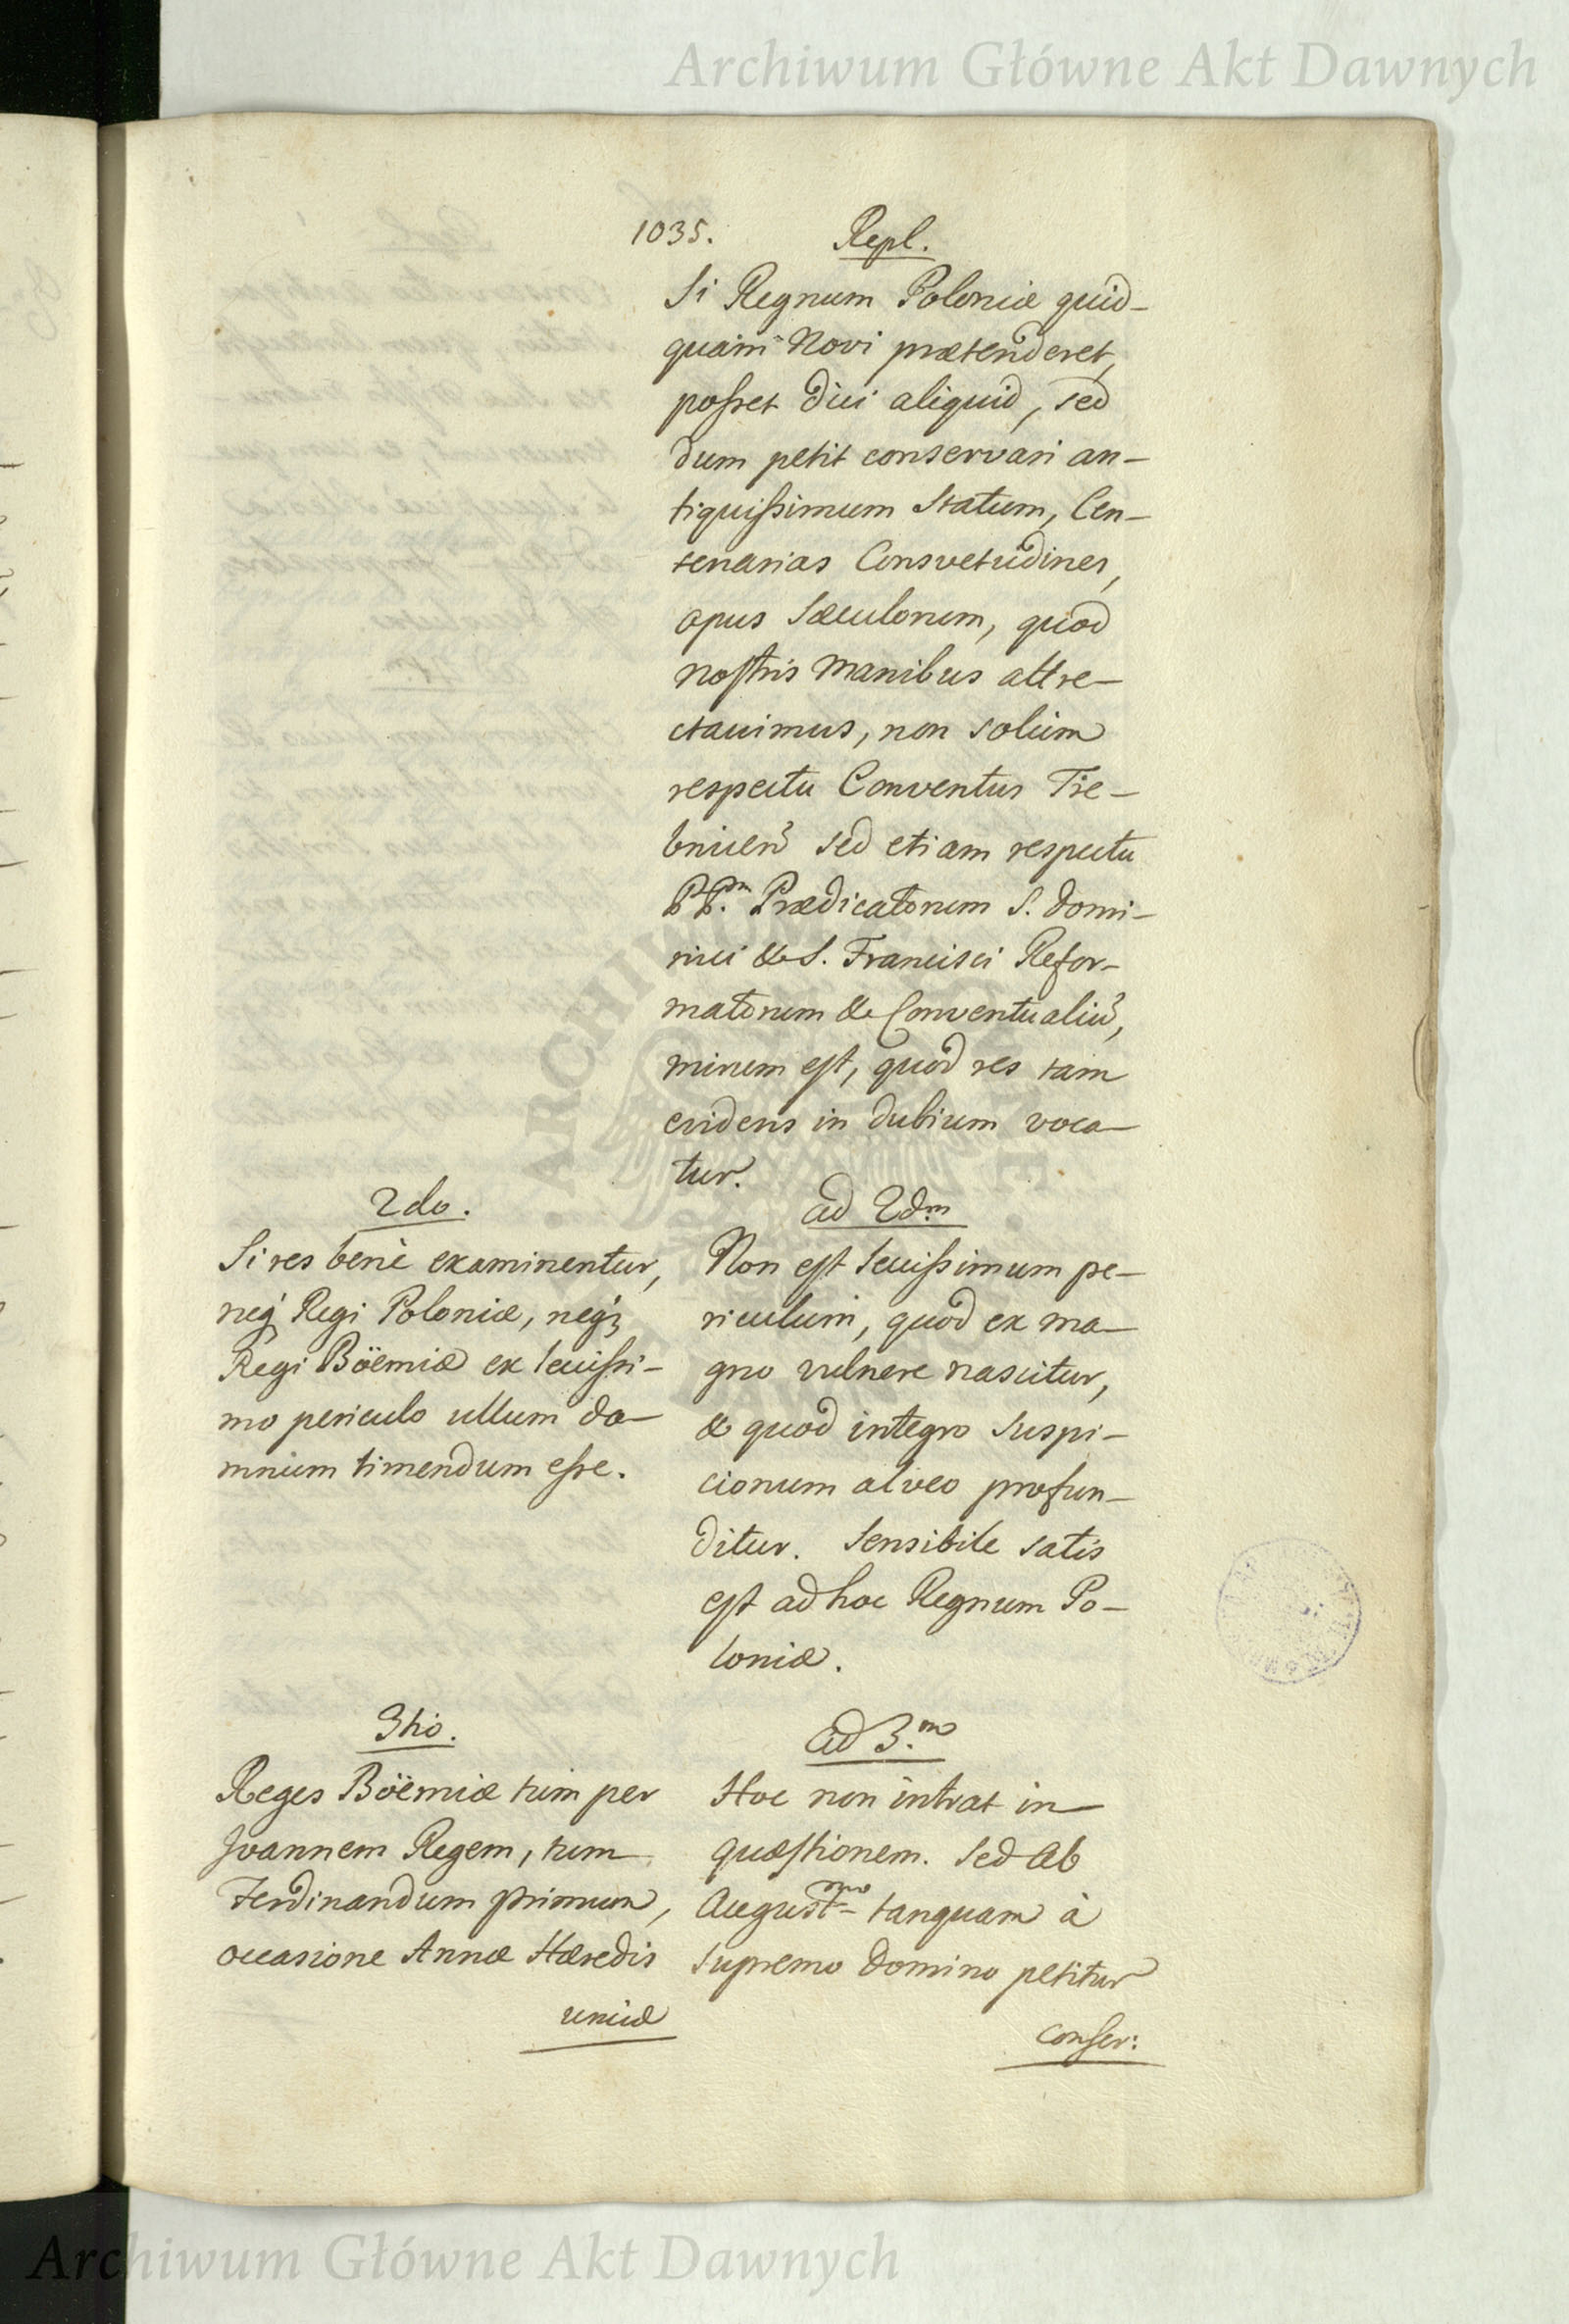 Archiwum Główne Akt Dawnych
1035. Repl.
Si Regnum Poloniæ quid-
quam Novi prætenderet,
posset dici aliquid, sed
dum petit conservari an-
tiquissimum Statum, Cen-
tenarias Consvetudines,
opus Sæculorum, quod
nostris manibus attre-
ctavimus, non solùm
respectu Conventus Tre-
bnicen̄ sed etiam respectu
PP.m Prædicatorum S. Domi-
nici & S. Francisci Refor-
matorum & Conventualiū,
mirum est, quod res tam
evidens in dubium voca-
tur.
2do.
Si res benè examinentur,
neq; Regi Poloniæ, neq;
Regi Böemiæ ex levissi-
mo periculo ullum da-
mnum timendum esse.
ad 2dm
Non est levissimum pe-
riculum, quod ex ma-
gno vulnere nascitur,
& quod integro Suspi-
cionum alveo profun-
ditur. Sensibile satis
est ad hoc Regnum Po-
loniæ.
3tio.
Reges Böemiæ tùm per
Joannem Regem, tum
Ferdinandum primum,
occasione Annæ Hæredis
unicæ
ad 3.m
Hoc non intrat in
quæstionem. Sed ab
August-mo tanquam à
Supremo Domino petitur
conser:
Archiwum Główne Akt Dawnych